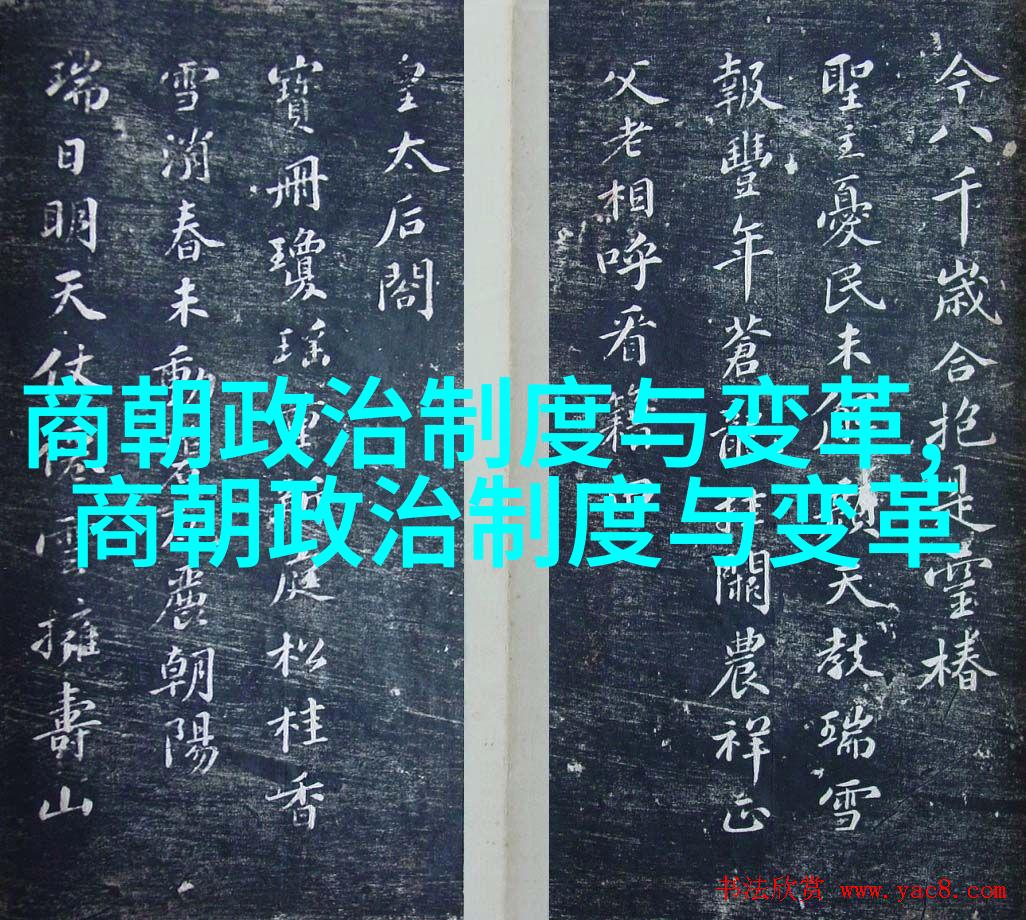 今八千歲合抱是靈椿
聖主憂民未
天教瑞雪
報豐年蒼
拜闕農祥正
父老相呼看
皇太后閣
寶冊瓊瑤
庭松桂香
雪消春未動
麗朝陽
瑞日明天仗
雪擁壽山
商朝政治制度与变革,
商朝政治制度与变革
书法欣赏 www.yac8.com